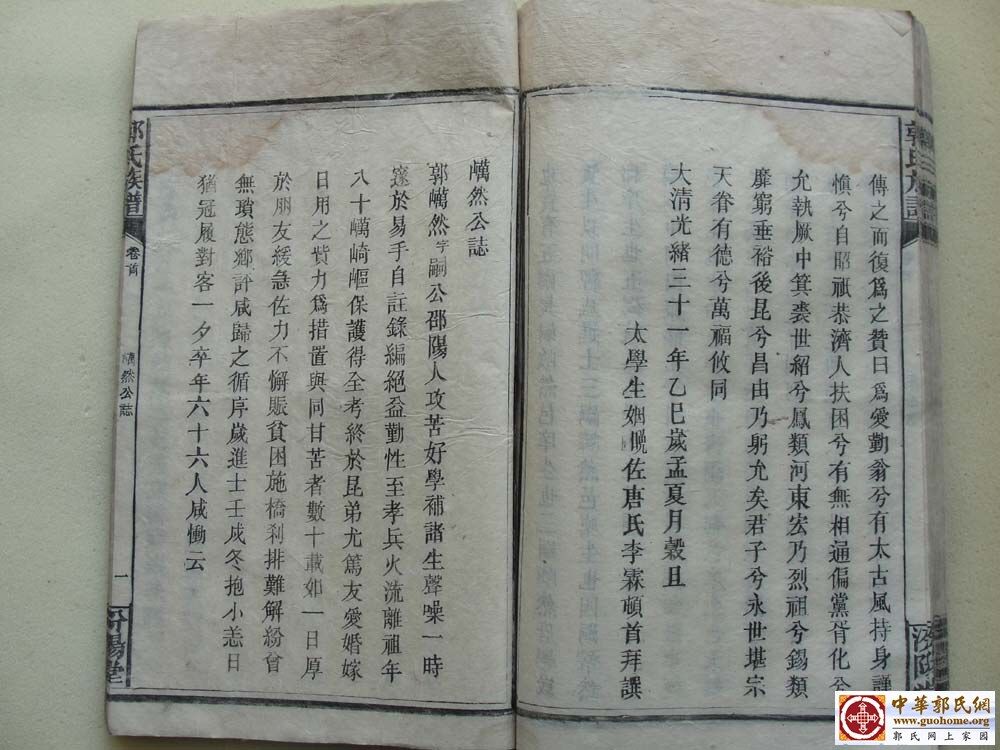 傳之而復爲之贊曰爲愛勤翁兮有太古風持身謹
愼兮自昭祇恭濟人扶困兮有無相通偏黨胥化兮
允執厥中箕裘世紹兮鳳類河東宏乃烈祖兮錫類
靡窮垂裕後昆兮昌由乃躬允矣君子兮永世堪宗
天眷有德兮萬福攸同
大清光緒三十一年乙巳歲孟夏月穀旦
太學生姻晩佐唐氏李霖頓首拜譔
郭氏族譜
卷首
㠣然公誌
一
汾陽堂
㠣然公誌
郭㠣然字嗣公邵陽人攻苦好學補諸生聲噪一時
邃於易手自註錄編絕益勤性至孝兵火流離祖年
八十㠣崎嶇保護得全考終於昆弟尤篤友愛婚嫁
日用之貲力爲措置與同甘苦者數十載如一日厚
於朋友緩急佐力不懈賑貧困施橋刹排難解紛曾
無瑣態鄉評咸歸之循序歲進士壬戌冬抱小恙日
猶冠履對客一夕卒年六十六人咸慟云
中華郭氏網
www.guohome.org
郭氏网上家園